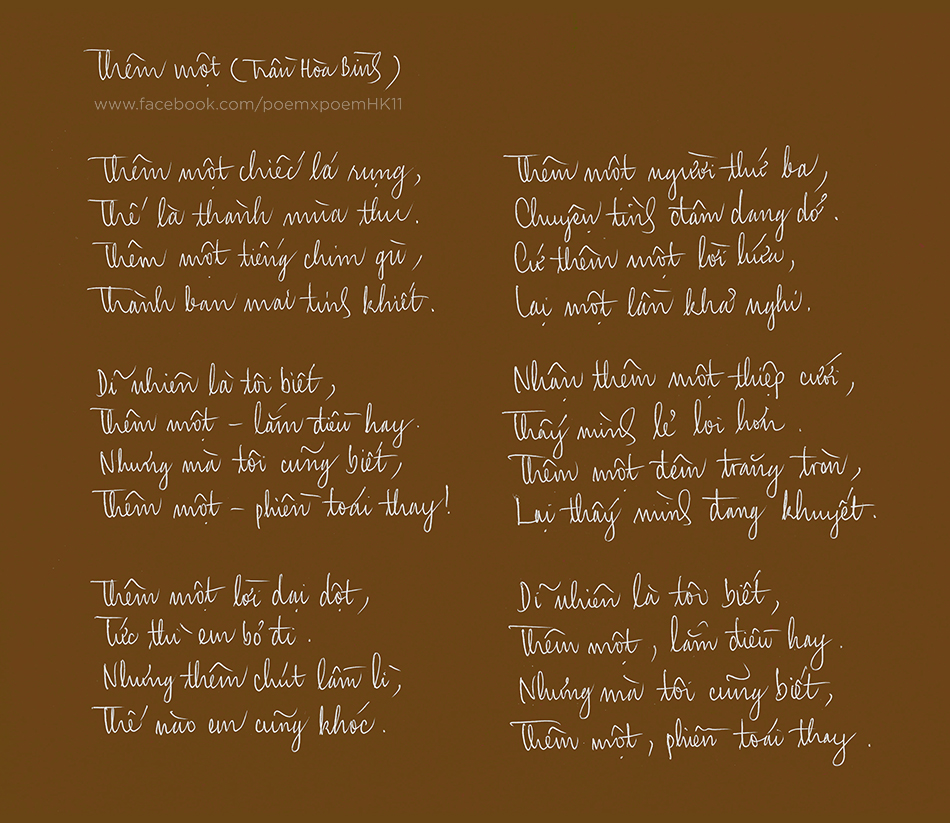 Thêm một (Trần Hòa Bình)
www.facebook.com/poemxpoemHK11
Thêm một chiếc lá rụng,
Thế là thành mùa thu.
Thêm một tiếng chim gù,
Thành ban mai tinh khiết.
Dĩ nhiên là tôi biết,
Thêm một – lắm điều hay.
Nhưng mà tôi cũng biết,
Thêm một – phiền toái thay!
Thêm một lời dại dột,
Tức thì em bỏ đi.
Nhưng thêm chút lầm lì,
Thế nào em cũng khóc.
Thêm một người thứ ba,
Chuyện tình đâm dang dở.
Cứ thêm một lời hứa,
Lại một lần khả nghi.
Nhận thêm một thiệp cưới,
Thấy mình lẻ loi hơn.
Thêm một đêm trăng tròn,
Lại thấy mình đang khuyết.
Dĩ nhiên là tôi biết,
Thêm một, lắm điều hay.
Nhưng mà tôi cũng biết,
Thêm một, phiền toái thay.